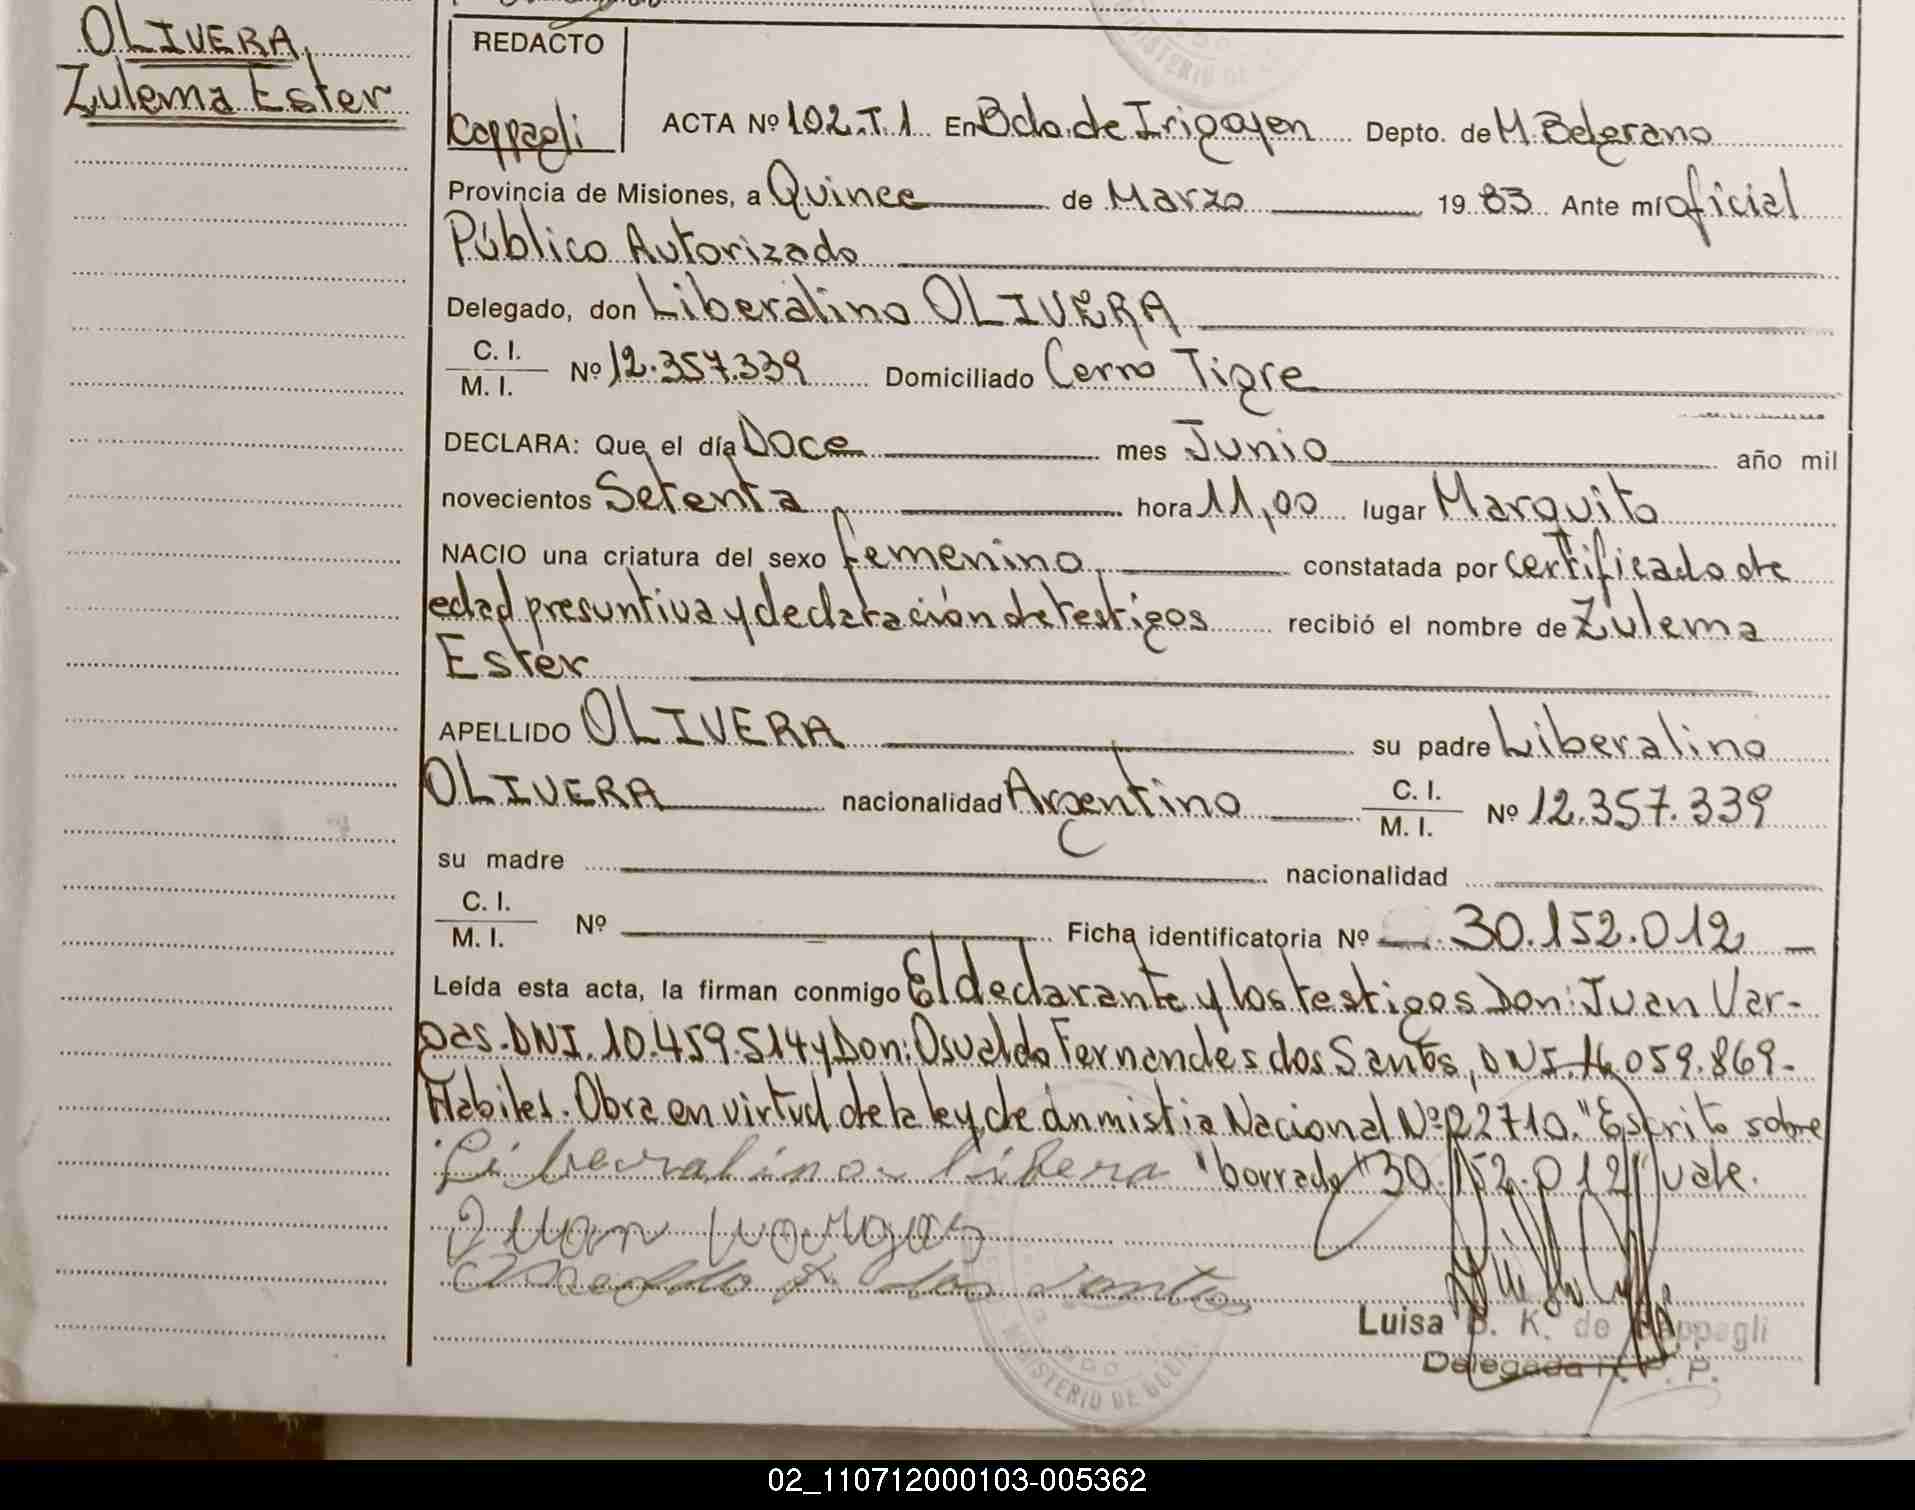 OLIVERA,
Zulema Ester
REDACTO
Coppagli
ACTA Nº 102.T.1 En Bdo. de Irigoyen Depto. de M. Belgrano
Provincia de Misiones, a Quince de Marzo 19 83 Ante mí oficial
Público Autorizado
Delegado, don Liberalino OLIVERA
C. I.
M. I. Nº 12.357.339 Domiciliado Cerro Tigre
DECLARA: Que el día Doce mes Junio año mil
novecientos Setenta hora 11,00 lugar Marquito
NACIO una criatura del sexo femenino, constatada por certificado de
edad presuntiva y declaración de testigos recibió el nombre de Zulema
Ester
APELLIDO OLIVERA su padre Liberalino
OLIVERA nacionalidad Argentino C. I.
M. I. Nº 12.357.339
su madre nacionalidad
C. I.
M. I. Nº Ficha identificatoria Nº 30.152.012
Leída esta acta, la firman conmigo El declarante y los testigos Don: Juan Var-
gas. DNI. 10.459.514 y Don: Osvaldo Fernandes dos Santos, DNI. 16.059.869-
Habiles. Obra en virtud de la ley de anmistia Nacional Nº 22710. "Escrito sobre
borrado "30.152.012" vale.
Juan Vargas
dos Santos
Luisa B. K. de Cappagli
Delegada R. P. P.
MINISTERIO DE GOB
02_110712000103-005362